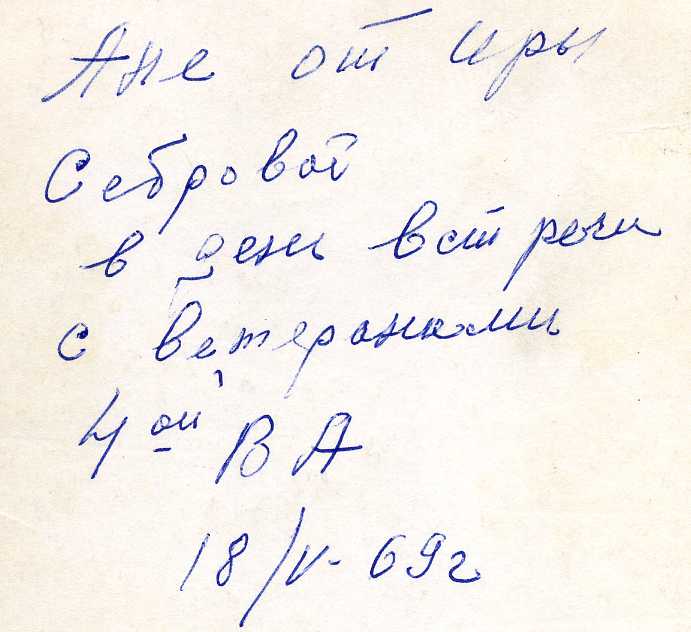 Ане от Иры
Себровой
в день встречи
с ветеранами
4ой ВА
18/V-69г